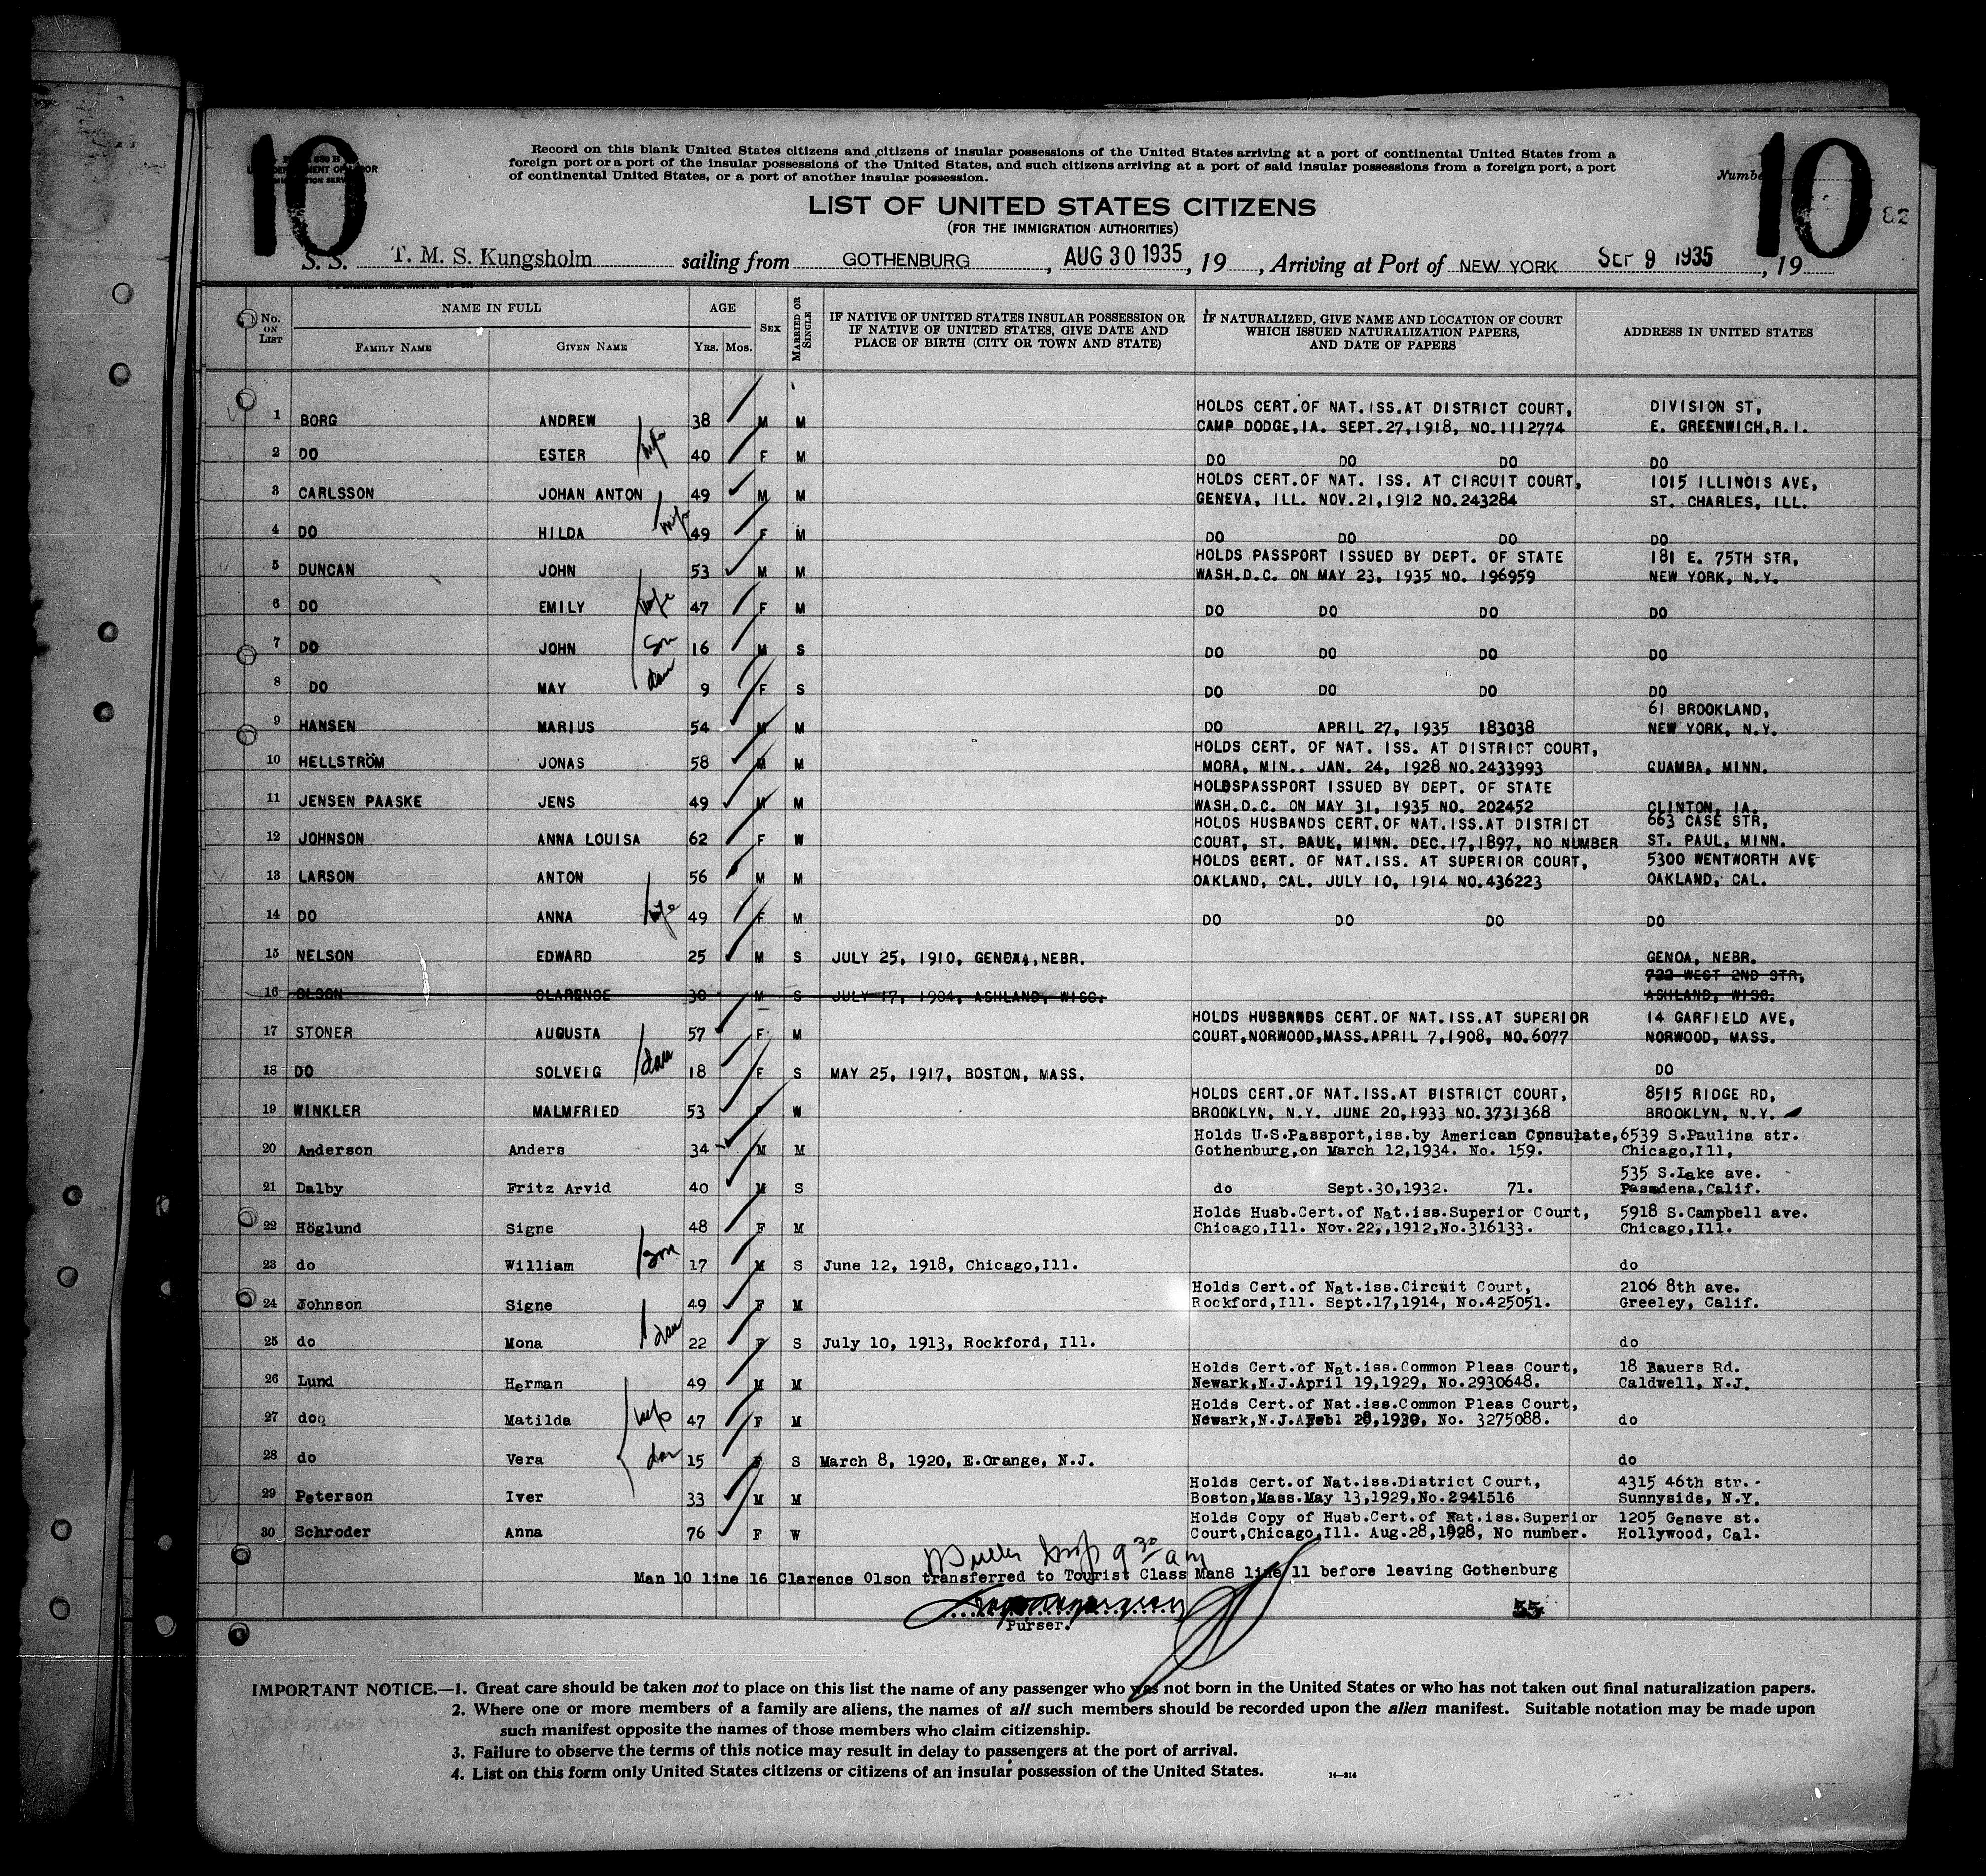 10
10
82
Record on this blank United States citizens and citizens of insular possessions of the United States arriving at a port of continental United States from a
foreign port or a port of the insular possessions of the United States, and such citizens arriving at a port of said insular possessions from a foreign port, a port
of continental United States, or a port of another insular possession.
LIST OF UNITED STATES CITIZENS
(FOR THE IMMIGRATION AUTHORITIES)
S. S. T. M. S. Kungsholm sailing from GOTHENBURG, AUG 30 1935, 19, Arriving at Port of NEW YORK SEP 9 1935, 19
No. ON LIST NAME IN FULL AGE SEX MARRIED OR SINGLE IF NATIVE OF UNITED STATES INSULAR POSSESSION OR IF NATIVE OF UNITED STATES, GIVE DATE AND PLACE OF BIRTH (CITY OR TOWN AND STATE) IF NATURALIZED, GIVE NAME AND LOCATION OF COURT WHICH ISSUED NATURALIZATION PAPERS, AND DATE OF PAPERS ADDRESS IN UNITED STATES
FAMILY NAME GIVEN NAME YRS. MOS.
HOLDS CERT.OF NAT.ISS.AT DISTRICT COURT, DIVISION ST,
1 BORG ANDREW 38 M M CAMP DODGE,IA. SEPT.27,1918, NO.1112774 E. GREENWICH,R.I.
2 DO ESTER wife 40 F M DO DO DO DO
HOLDS CERT.OF NAT. ISS. AT CIRCUIT COURT, 1015 ILLINOIS AVE,
3 CARLSSON JOHAN ANTON 49 M M GENEVA, ILL. NOV.21,1912 NO.243284 ST. CHARLES, ILL.
4 DO HILDA wife 49 F M DO DO DO DO
HOLDS PASSPORT ISSUED BY DEPT. OF STATE 181 E. 75TH STR,
5 DUNCAN JOHN 53 M M WASH.D.C. ON MAY 23, 1935 NO. 196959 NEW YORK, N.Y.
6 DO EMILY wife 47 F M DO DO DO DO
7 DO JOHN Son 16 M S DO DO DO DO
8 DO MAY dau 9 F S DO DO DO DO
61 BROOKLAND,
9 HANSEN MARIUS 54 M M DO APRIL 27, 1935 183038 NEW YORK, N.Y.
HOLDS CERT. OF NAT. ISS. AT DISTRICT COURT,
10 HELLSTRÖM JONAS 58 M M MORA, MIN.. JAN. 24, 1928 NO.2433993 QUAMBA, MINN.
HOLDSPASSPORT ISSUED BY DEPT. OF STATE
11 JENSEN PAASKE JENS 49 M M WASH.D.C. ON MAY 31, 1935 NO. 202452 CLINTON, IA.
HOLDS HUSBANDS CERT.OF NAT.ISS.AT DISTRICT 663 CASE STR,
12 JOHNSON ANNA LOUISA 62 F W COURT, ST. PAUL, MINN. DEC.17,1897, NO NUMBER ST. PAUL, MINN.
HOLDS CERT. OF NAT.ISS. AT SUPERIOR COURT, 5300 WENTWORTH AVE
13 LARSON ANTON 56 M M OAKLAND, CAL. JULY 10, 1914 NO.436223 OAKLAND, CAL.
14 DO ANNA wife 49 F M DO DO DO DO
15 NELSON EDWARD 25 M S JULY 25, 1910, GENOA,NEBR. GENOA, NEBR.
722 WEST 2ND STR,
16 OLSON CLARENCE 30 M S JULY 17, 1904, ASHLAND, WISC. ASHLAND, WISC.
HOLDS HUSBANDS CERT.OF NAT.ISS.AT SUPERIOR 14 GARFIELD AVE,
17 STONER AUGUSTA 57 F M COURT,NORWOOD,MASS.APRIL 7,1908, NO.6077 NORWOOD, MASS.
18 DO SOLVEIG dau 18 F S MAY 25, 1917, BOSTON, MASS. DO
HOLDS CERT.OF NAT.ISS.AT DISTRICT COURT, 8515 RIDGE RD,
19 WINKLER MALMFRIED 53 F W BROOKLYN, N.Y. JUNE 20,1933 NO.3731368 BROOKLYN, N.Y.
Holds U.S.Passport,iss.by American Consulate, 6539 S.Paulina str.
20 Anderson Anders 34 M M Gothenburg,on March 12,1934. No. 159. Chicago,Ill,
535 S.Lake ave.
21 Dalby Fritz Arvid 40 M S do Sept.30,1932. 71. Pasadena,Calif.
Holds Husb.Cert.of Nat.iss.Superior Court, 5918 S.Campbell ave.
22 Höglund Signe 48 F M Chicago,Ill. Nov.22,,1912,No.316133. Chicago,Ill.
23 do William son 17 M S June 12, 1918, Chicago,Ill. do
Holds Cert.of Nat.iss.Circuit Court, 2106 8th ave.
24 Johnson Signe 49 F M Rockford,Ill. Sept.17,1914, No.425051. Greeley, Calif.
25 do Mona dau 22 F S July 10, 1913, Rockford, Ill. do
Holds Cert.of Nat.iss.Common Pleas Court, 18 Bauers Rd.
26 Lund Herman 49 M M Newark,N.J.April 19,1929, No.2930648. Caldwell, N.J.
Holds Cert.of Nat.iss.Common Pleas Court,
27 do Matilda wife 47 F M Newark,N.J. 28,1930, No. 3275088. do
28 do Vera dau 15 F S March 8, 1920, E.Orange, N.J. do
Holds Cert.of Nat.iss.District Court, 4315 46th str.-
29 Peterson Iver 33 M M Boston,Mass.May 13,1929,No.2941516 Sunnyside, N.Y.
Holds Copy of Husb.Cert.of Nat.iss.Superior 1205 Geneve st.
30 Schroder Anna 76 F W Court,Chicago,Ill. Aug.28,1908, No number. Hollywood, Cal.
9 30 am
Man 10 line 16 Clarence Olson transferred to Tourist Class Man8 line 11 before leaving Gothenburg
55
Purser.
IMPORTANT NOTICE.—1. Great care should be taken not to place on this list the name of any passenger who was not born in the United States or who has not taken out final naturalization papers.
2. Where one or more members of a family are aliens, the names of all such members should be recorded upon the alien manifest. Suitable notation may be made upon
such manifest opposite the names of those members who claim citizenship.
3. Failure to observe the terms of this notice may result in delay to passengers at the port of arrival.
4. List on this form only United States citizens or citizens of an insular possession of the United States. 14—214